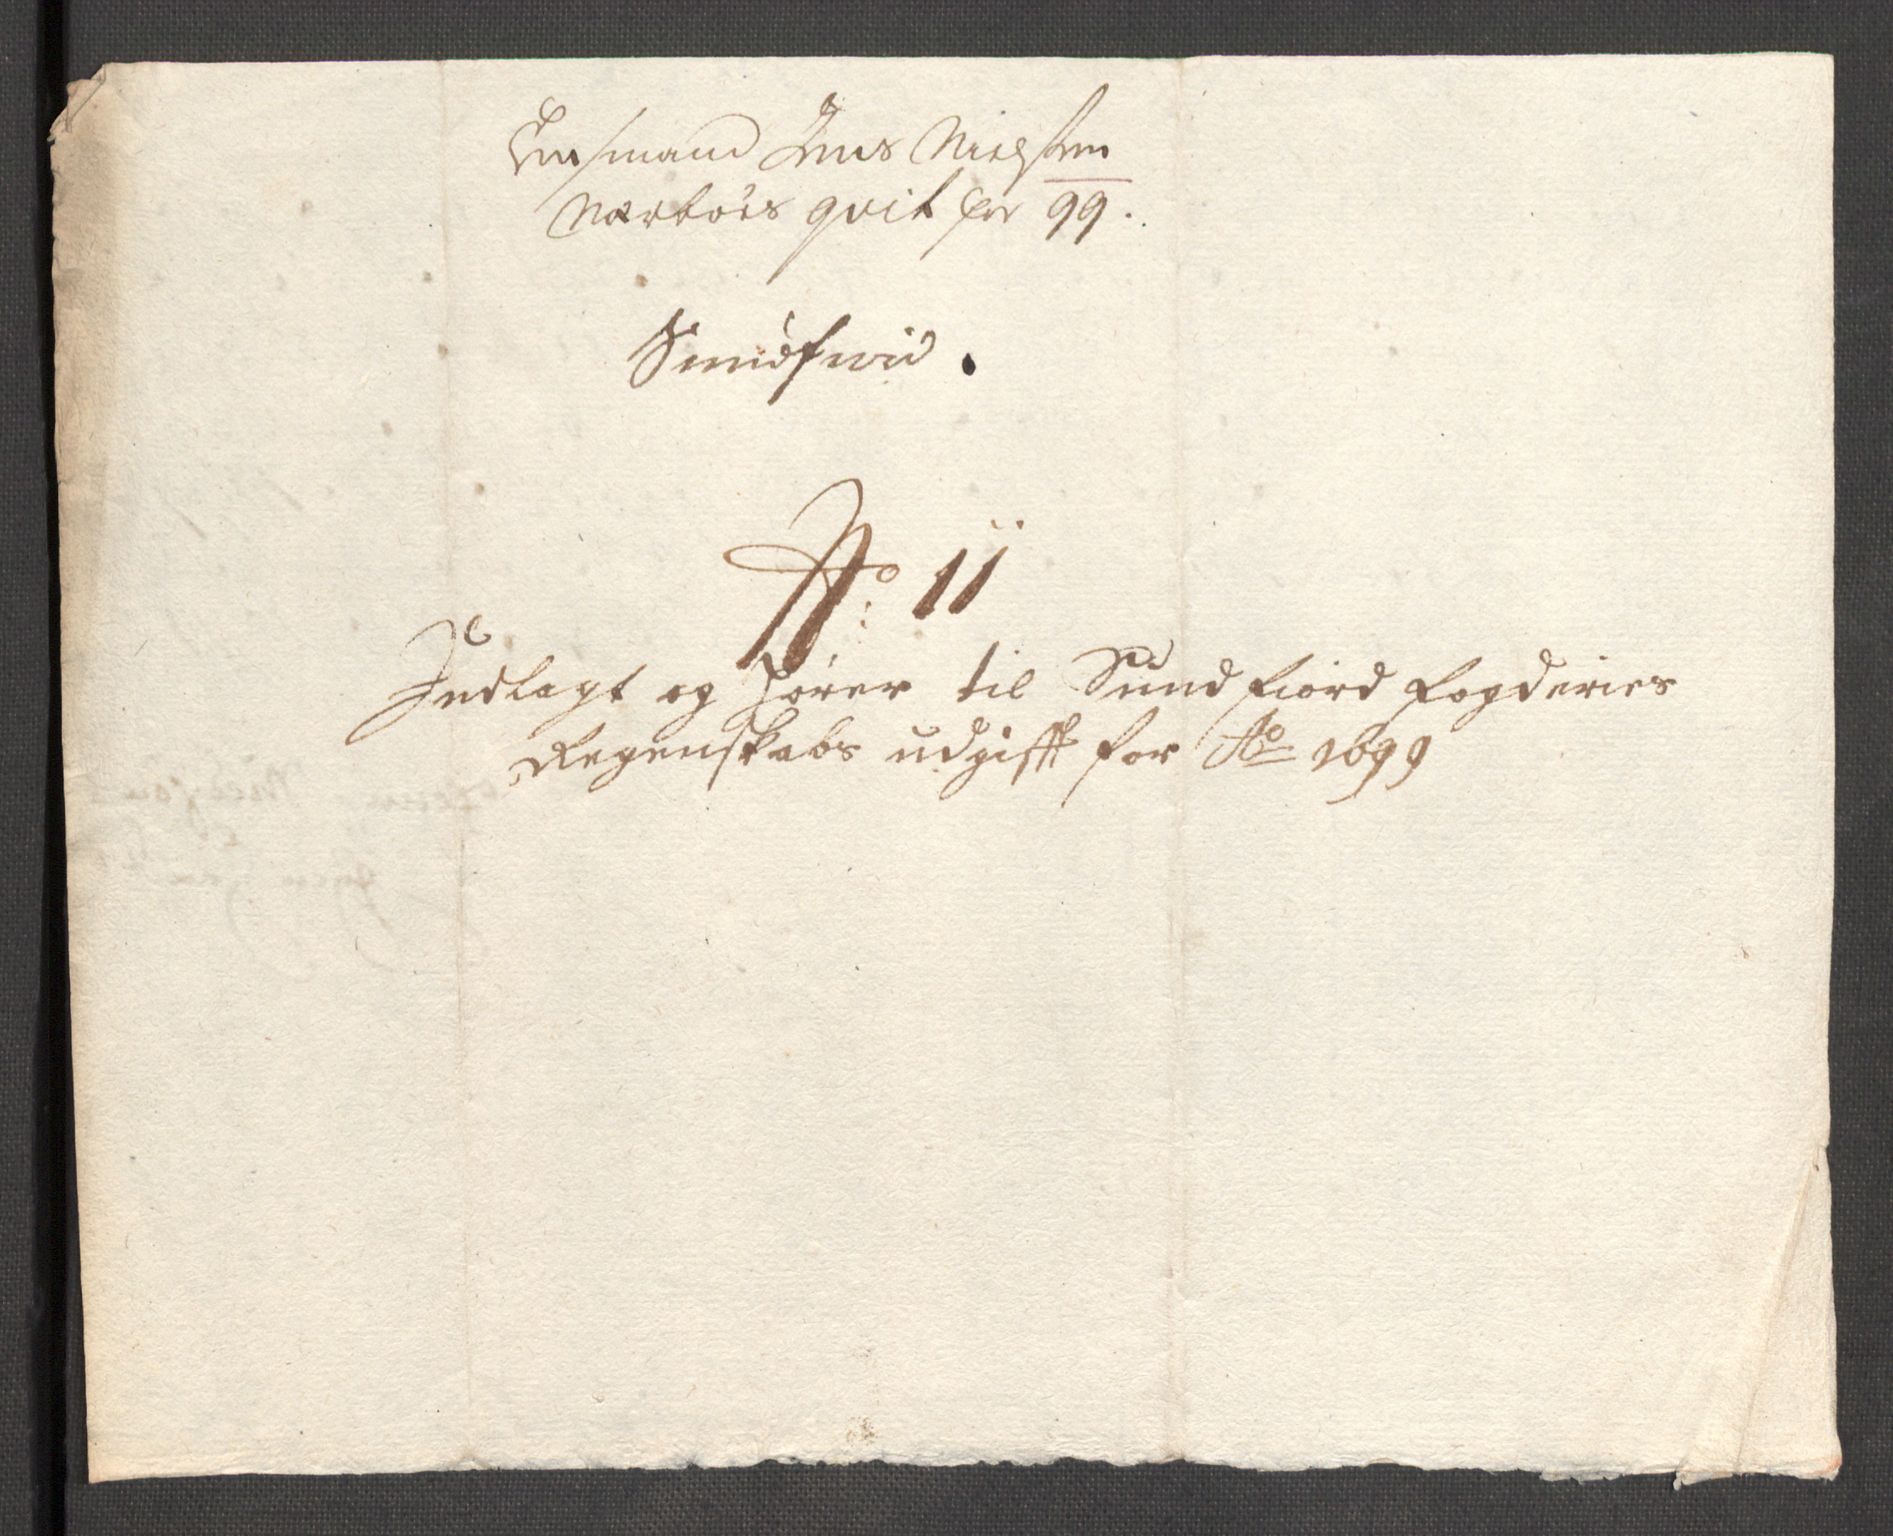 Lensmand Jens Nielsøn
Nærbøes qvit for 99.
Sundfiord.
No: 11
Indlagt og hører til Sundfiord fogderies
Regenskabs udgifft for Ao 1699